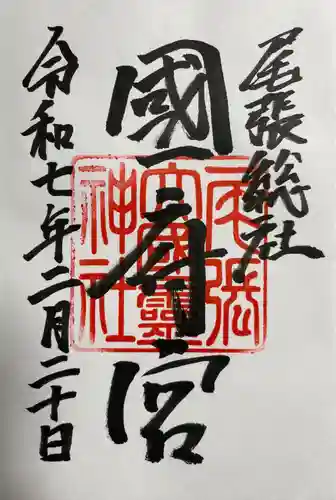 尾張総社
國府宮
尾張
大國霊
神社
令和七年二月二十日